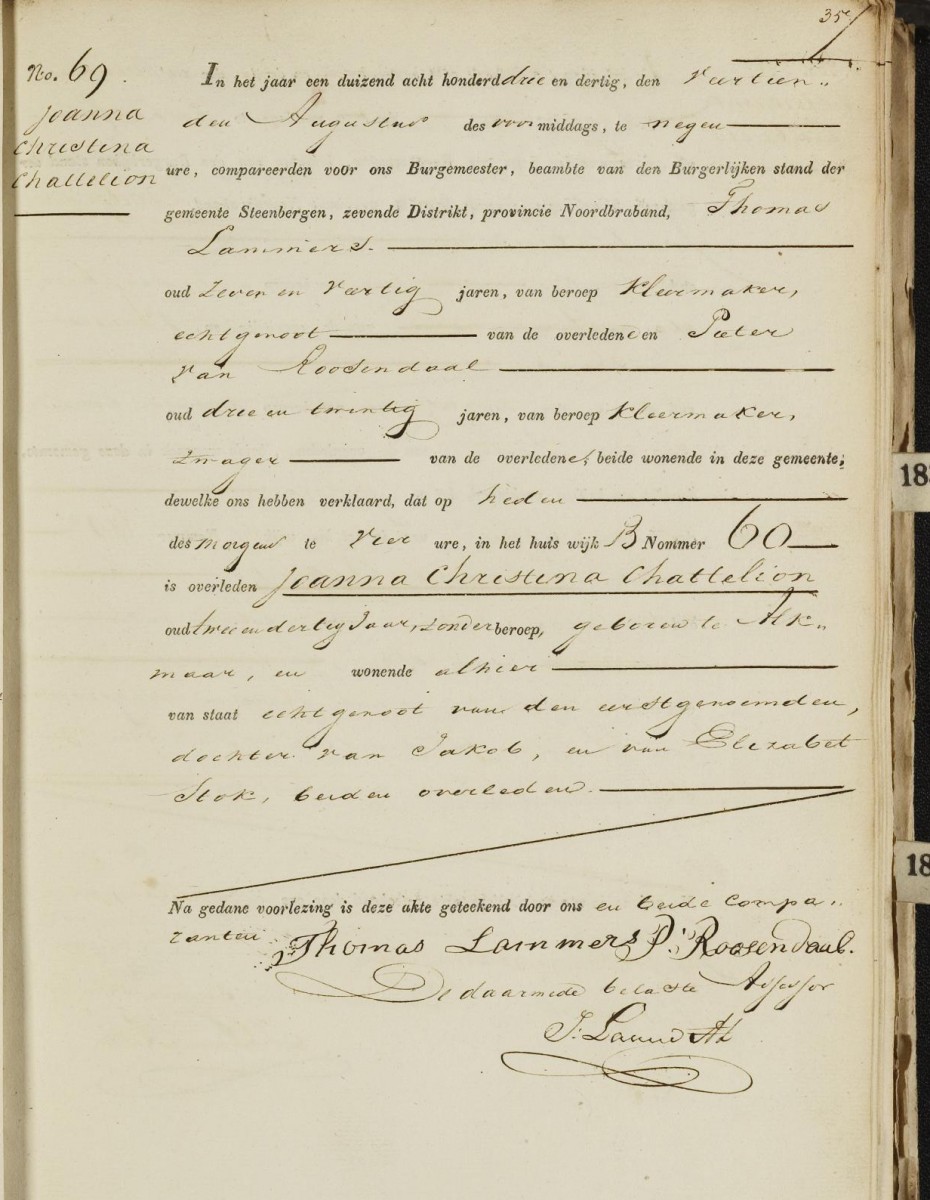 35
No. 69
Joanna
Christina
Chattelion
In het jaar een duizend acht honderd drie en dertig, den Veertien
den Augustus des voor middags, te negen
ure, compareerden voor ons Burgemeester, beambte van den Burgerlijken stand der
gemeente Steenbergen, zevende Distrikt, provincie Noordbraband, Thomas
Lammers.
oud Zeven en Veertig jaren, van beroep kleermaker,
echtgenoot van de overledene en Pieter
van Roosendaal
oud drie en twintig jaren, van beroep kleermaker,
zwager van de overledene, beide wonende in deze gemeente;
dewelke ons hebben verklaard, dat op heden
des morgens te Vier ure, in het huis wijk B Nommer 60
is overleden Joanna Christina Chattelion
oud twee en dertig Jaar, zonder beroep, geboren te Alk„
maar, en wonende alhier
van staat echtgenoot van den eerstgenoemden,
dochter van Jakob, en van Elizabet
Stok, beiden overleden.
Na gedane voorlezing is deze akte geteekend door ons en beide Compa„
ranten
Thomas Lammers P: Roosendaal.
De daarmede belaste Assessor
18
18